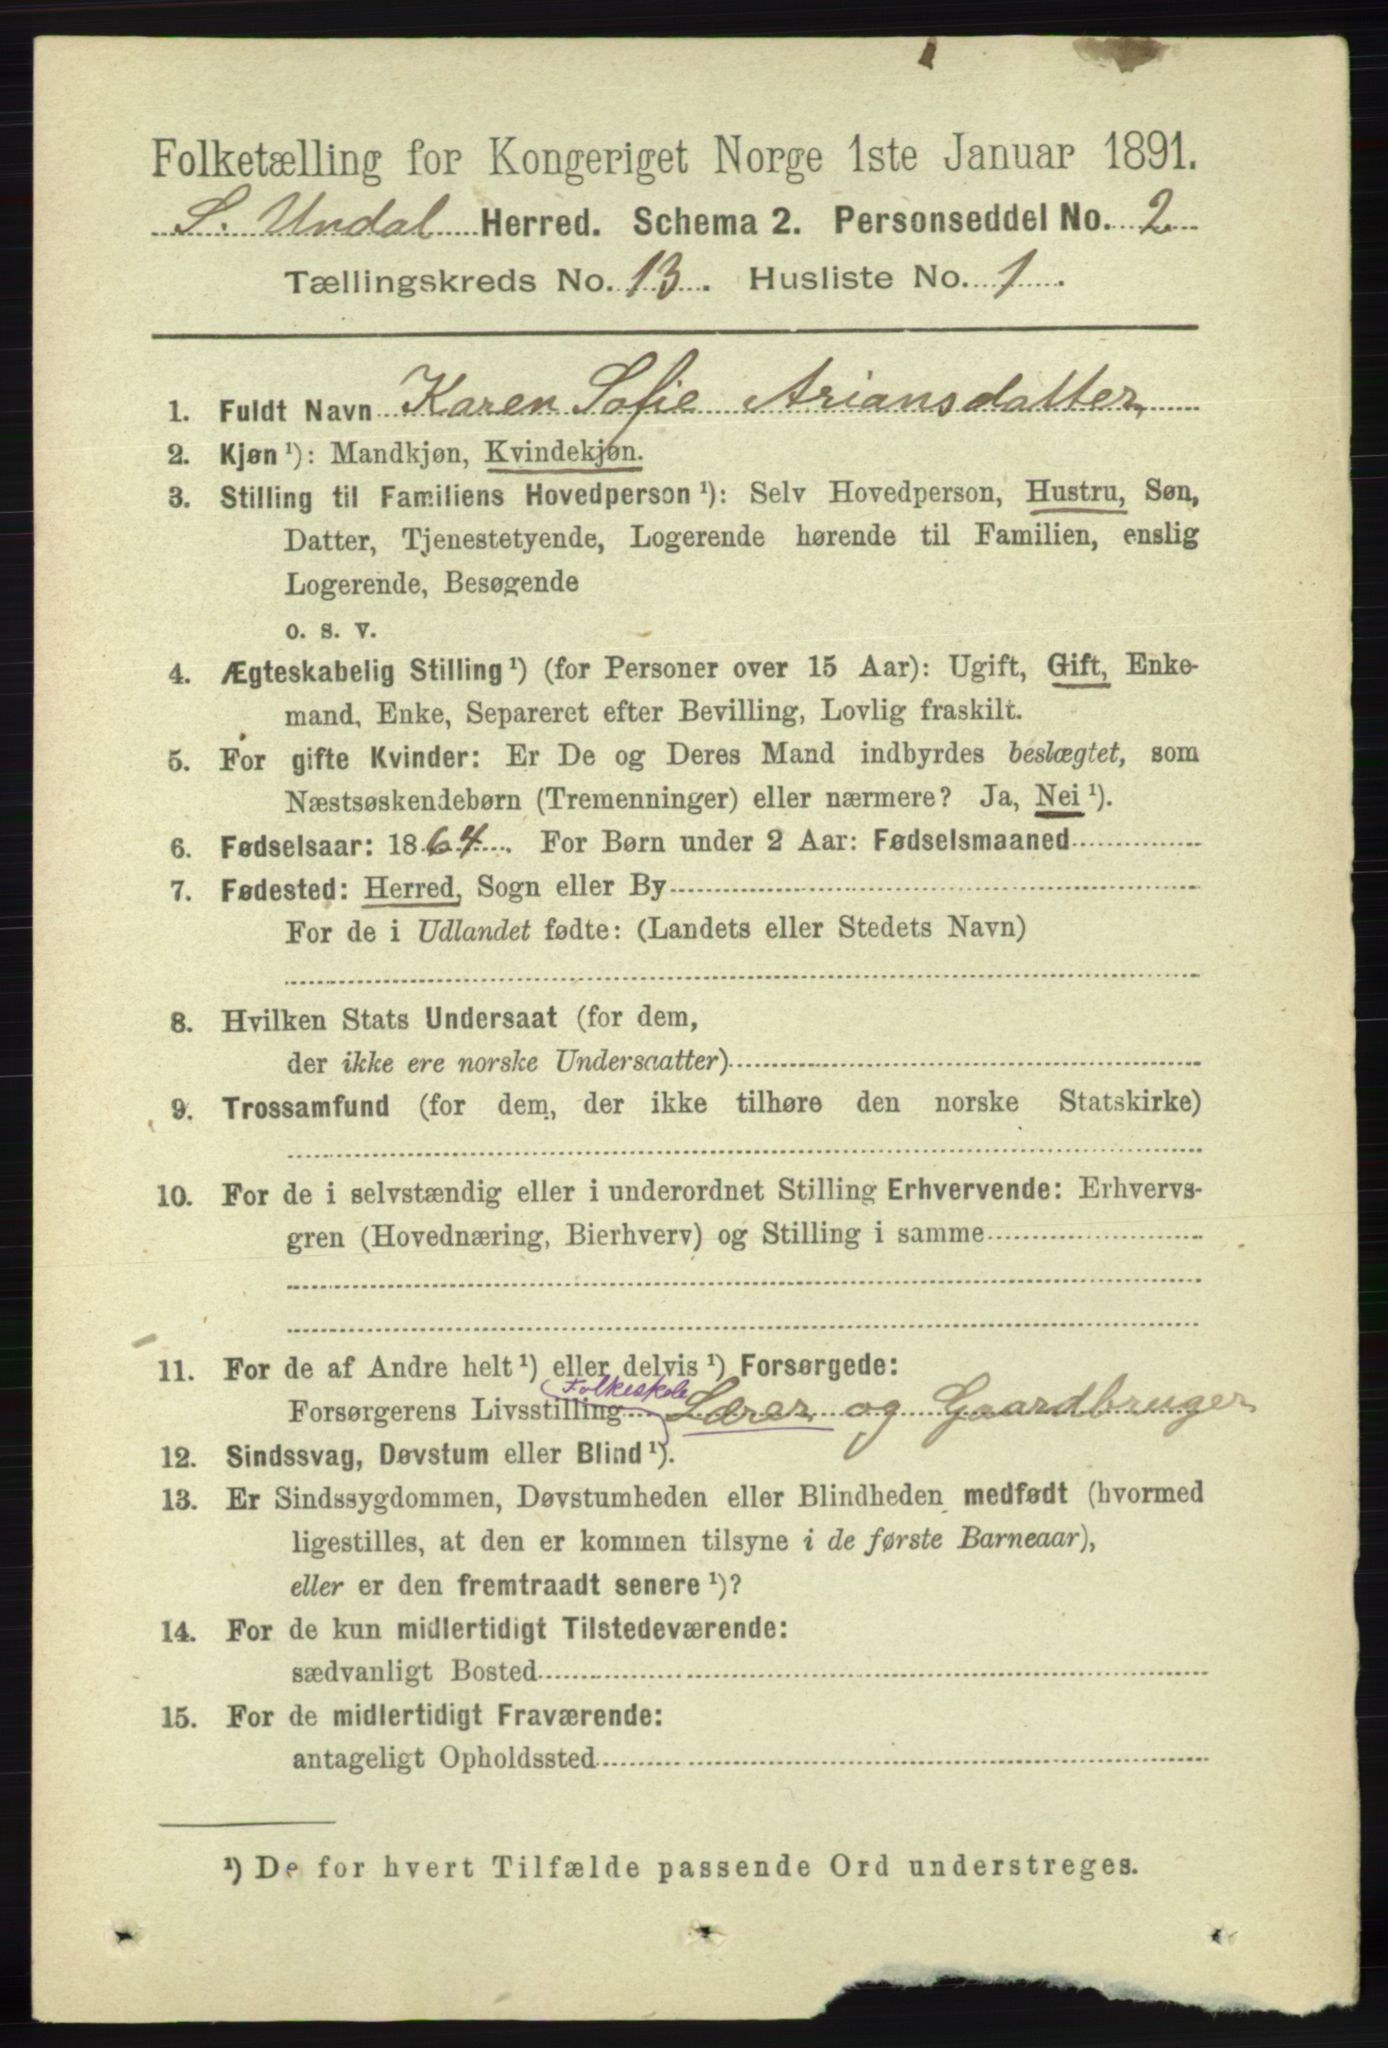 Folketælling for Kongeriget Norge 1ste Januar 1891.
S. Undal Herred. Schema 2. Personseddel No. 2
Tællingskreds No. 13. Husliste No. 1.
1. Fuldt Navn Karen Sofie Ariansdatter
2. Kjøn ¹): Mandkjøn, Kvindekjøn.
3. Stilling til Familiens Hovedperson ¹): Selv Hovedperson, Hustru, Søn,
Datter, Tjenestetyende, Logerende hørende til Familien, enslig
Logerende, Besøgende
o. s. v.
4. Ægteskabelig Stilling ¹) (for Personer over 15 Aar): Ugift, Gift, Enke-
mand, Enke, Separeret efter Bevilling, Lovlig fraskilt.
5. For gifte Kvinder: Er De og Deres Mand indbyrdes beslægtet, som
Næstsøskendebørn (Tremenninger) eller nærmere? Ja, Nei ¹).
6. Fødselsaar: 1864. For Børn under 2 Aar: Fødselsmaaned
7. Fødested: Herred, Sogn eller By
For de i Udlandet fødte: (Landets eller Stedets Navn)
8. Hvilken Stats Undersaat (for dem,
der ikke ere norske Undersaatter)
9. Trossamfund (for dem, der ikke tilhøre den norske Statskirke)
10. For de i selvstændig eller i underordnet Stilling Erhvervende: Erhvervs-
gren (Hovednæring, Bierhverv) og Stilling i samme
11. For de af Andre helt ¹) eller delvis ¹) Forsørgede:
Folkeskole
Forsørgerens Livsstilling Lærer og Gaardbruger
12. Sindssvag, Døvstum eller Blind ¹).
13. Er Sindssygdommen, Døvstumheden eller Blindheden medfødt (hvormed
ligestilles, at den er kommen tilsyne i de første Barneaar),
eller er den fremtraadt senere ¹)?
14. For de kun midlertidigt Tilstedeværende:
sædvanligt Bosted
15. For de midlertidigt Fraværende:
antageligt Opholdssted
¹) De for hvert Tilfælde passende Ord understreges.